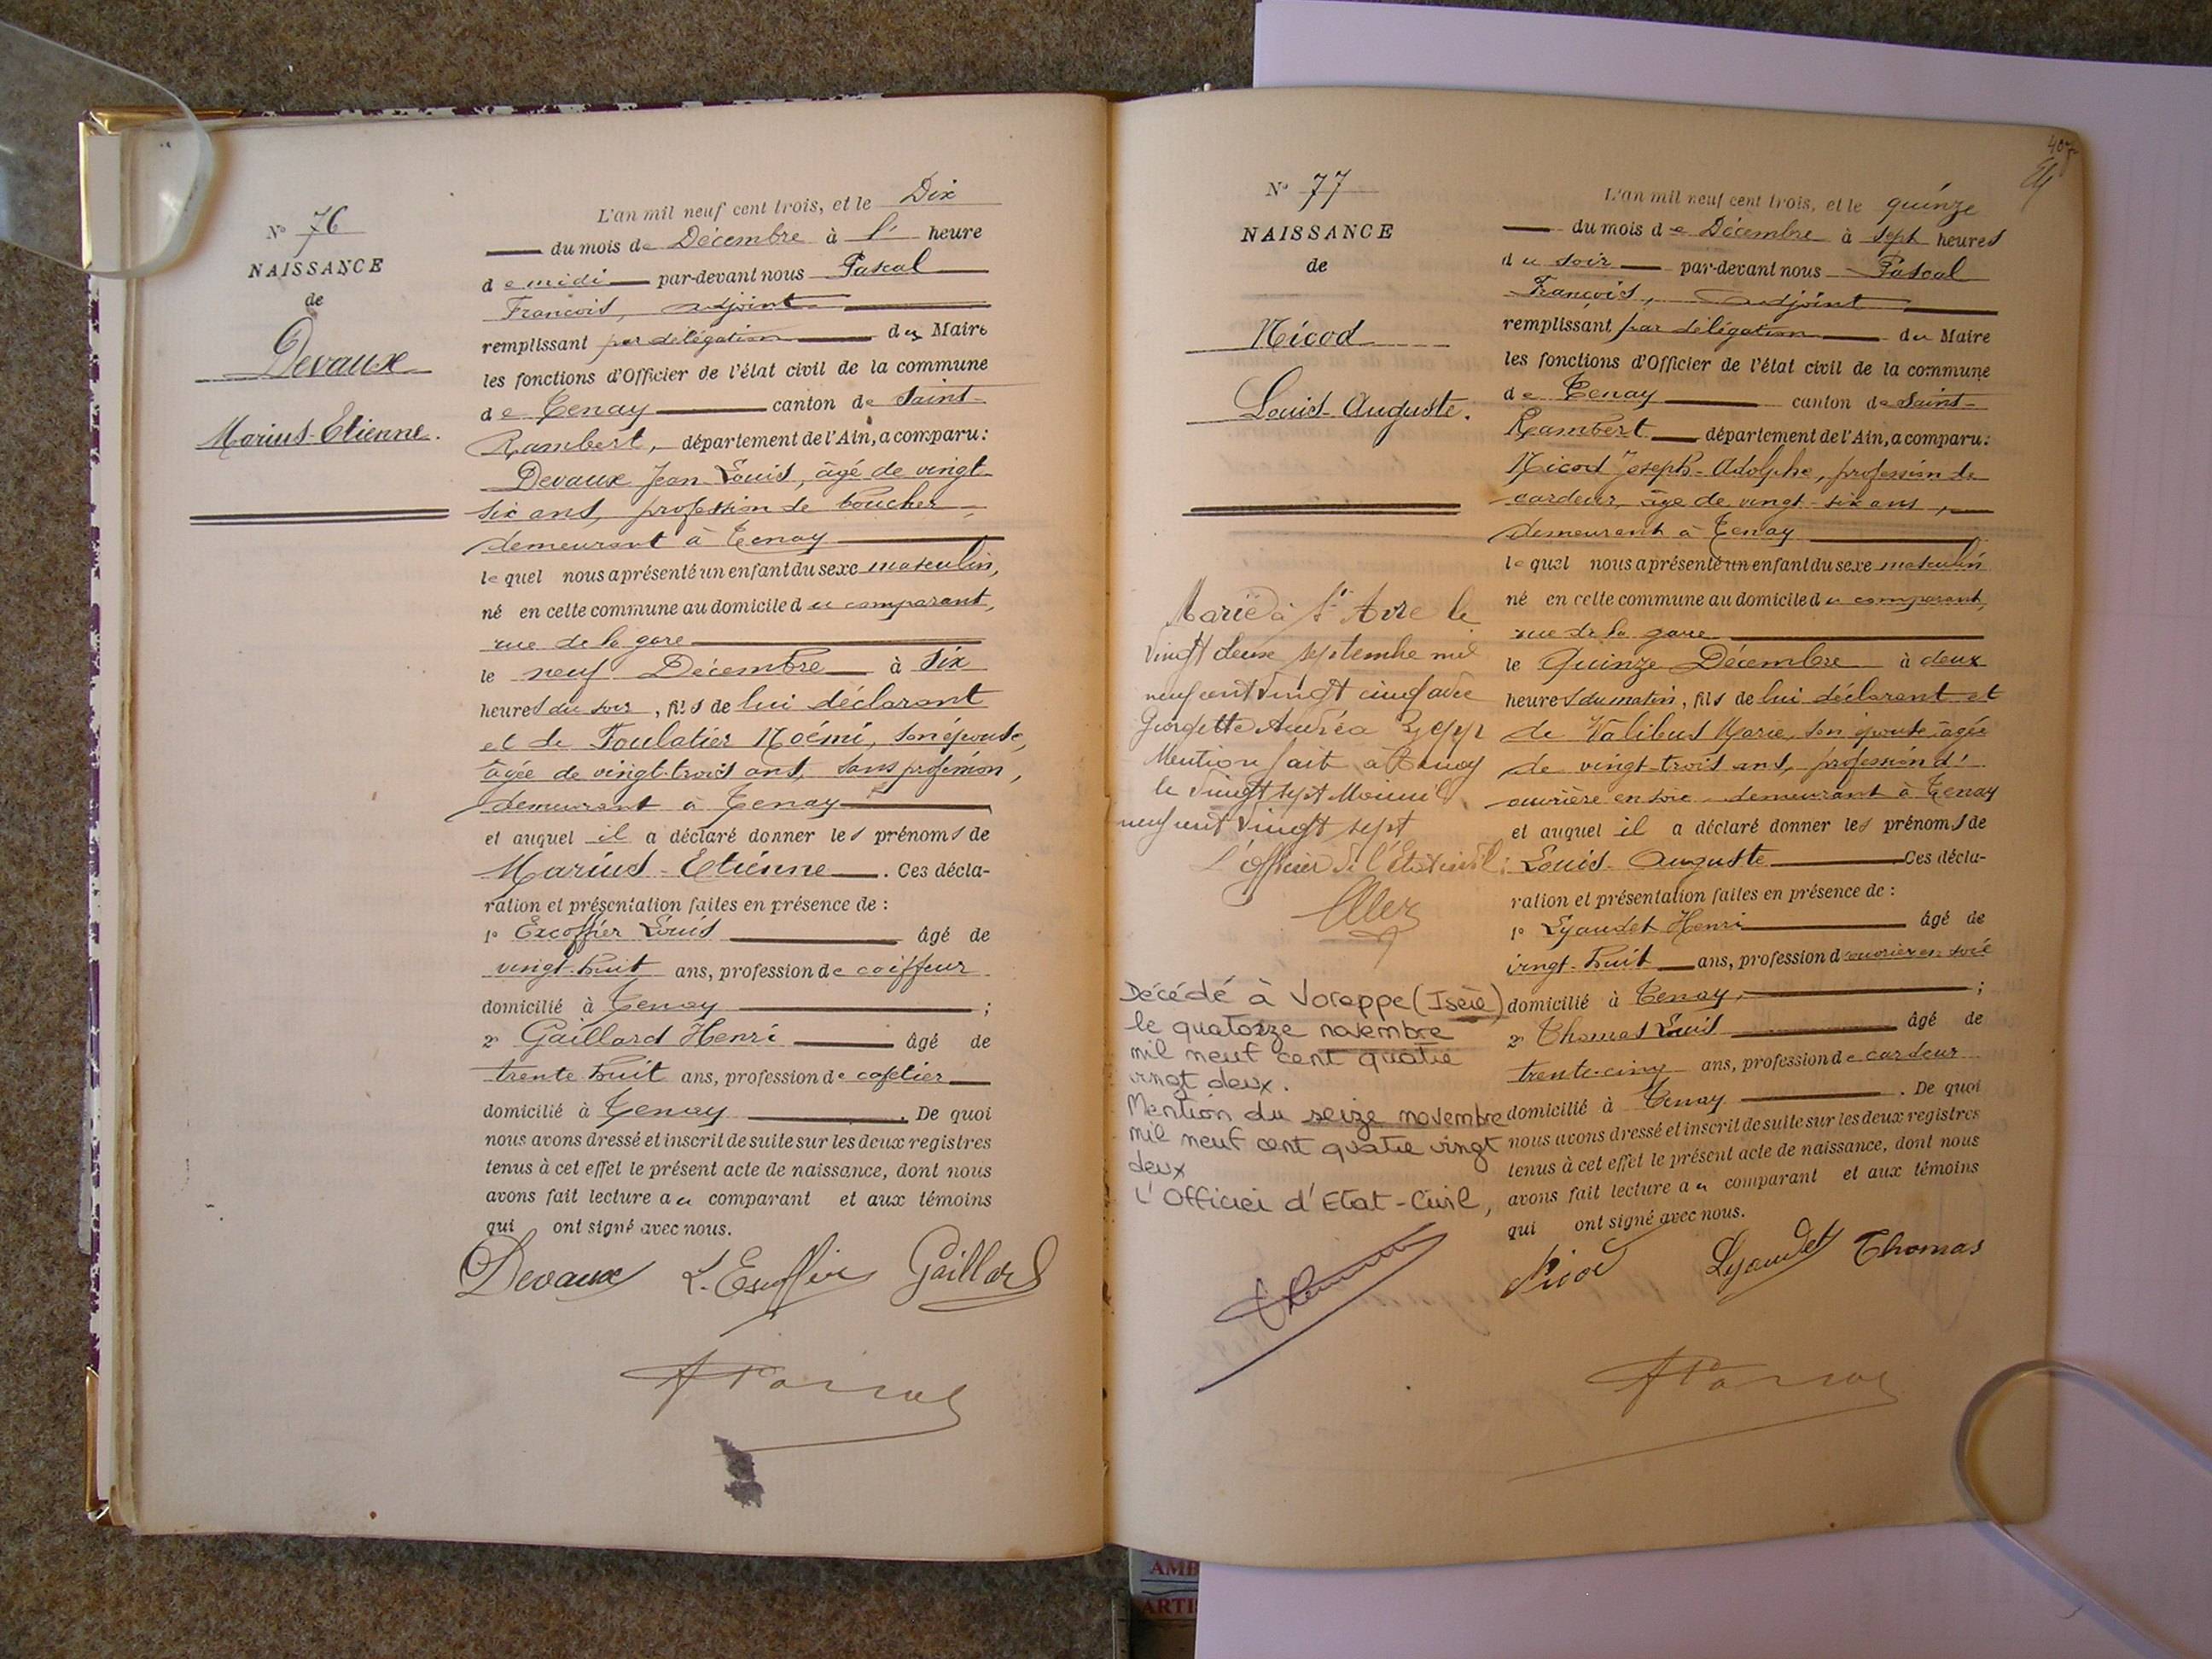 N° 76
NAISSANCE
de
Devaux
Marius-Etienne.
L'an mil neuf cent trois, et le Dix
du mois de Décembre à l' heure
de midi par-devant nous Pascal
François, adjoint
remplissant par délégation du Maire
les fonctions d'Officier de l'état civil de la commune
de Tenay canton de Saint-
Rambert, département de l'Ain, a comparu:
Devaux Jean Louis, âgé de vingt
six ans, profession de boucher
demeurant à Tenay
lequel nous a présenté un enfant du sexe masculin,
né en cette commune au domicile du comparant,
rue de la gare
le neuf Décembre à six
heures du soir, fils de lui déclarant
et de Foulatier Noémi, son épouse,
âgée de vingt-trois ans, sans profession,
demeurant à Tenay
et auquel il a déclaré donner les prénoms de
Marius-Etienne. Ces décla-
ration et présentation faites en présence de :
1° Excoffier Louis âgé de
vingt-huit ans, profession de coiffeur
domicilié à Tenay ;
2° Gaillard Henri âgé de
trente huit ans, profession de cafetier
domicilié à Tenay . De quoi
nous avons dressé et inscrit de suite sur les deux registres
tenus à cet effet le présent acte de naissance, dont nous
avons fait lecture au comparant et aux témoins
qui ont signé avec nous.
Devaux L. Excoffier Gaillard
F Pascal
407
N° 77
NAISSANCE
de
Nicod
Louis-Auguste.
Marié à St Avre le
vingt deux septembre mil
neuf cent vingt cinq avec
Georgette Andréa
Mention fait à Tenay
le vingt sept mil
neuf cent vingt sept
L'officier de l'Etat civil :
Décédé à Voreppe (Isère)
le quatorze novembre
mil neuf cent quatre
vingt deux.
Mention du seize novembre
mil neuf cent quatre vingt
deux
L'Officier d'Etat-Civil,
L'an mil neuf cent trois, et le quinze
du mois de Décembre à sept heures
du soir par-devant nous Pascal
François, adjoint
remplissant par délégation du Maire
les fonctions d'Officier de l'état civil de la commune
de Tenay canton de Saint-
Rambert département de l'Ain, a comparu:
Nicod Joseph-Adolphe, profession de
cardeur, âge de vingt-six ans,
demeurant à Tenay
lequel nous a présenté un enfant du sexe masculin
né en cette commune au domicile du comparant,
rue de la gare
le Quinze Décembre à deux
heures du matin, fils de lui déclarant et
de Valibus Marie, son épouse âgée
de vingt-trois ans, profession d'
ouvrière en soie demeurant à Tenay
et auquel il a déclaré donner les prénoms de
Louis-Auguste Ces décla-
ration et présentation faites en présence de :
1° Lyaudet Henri âgé de
vingt-huit ans, profession d'ouvrier en soie
domicilié à Tenay, ;
2° Thomas Louis âgé de
trente-cinq ans, profession de cardeur
domicilié à Tenay . De quoi
nous avons dressé et inscrit de suite sur les deux registres
tenus à cet effet le présent acte de naissance, dont nous
avons fait lecture au comparant et aux témoins
qui ont signé avec nous.
Nicod Lyaudet Thomas
F Pascal
AMB
ARTIS